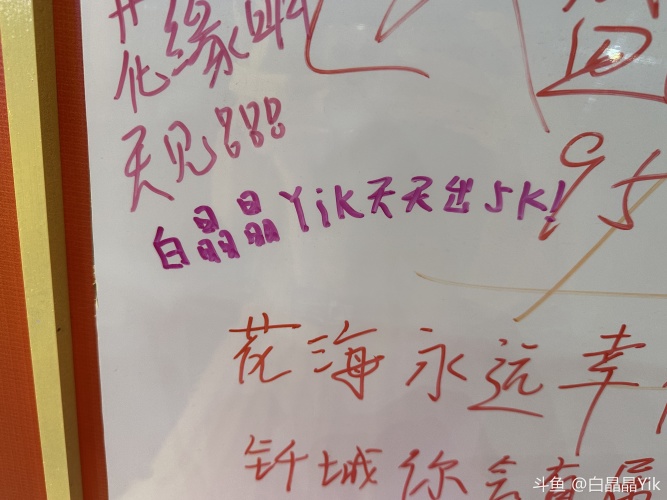 化缘
天见!!!
95
白晶晶Yik天天出5K!
花海永远幸
城你会
斗鱼 @白晶晶Yik